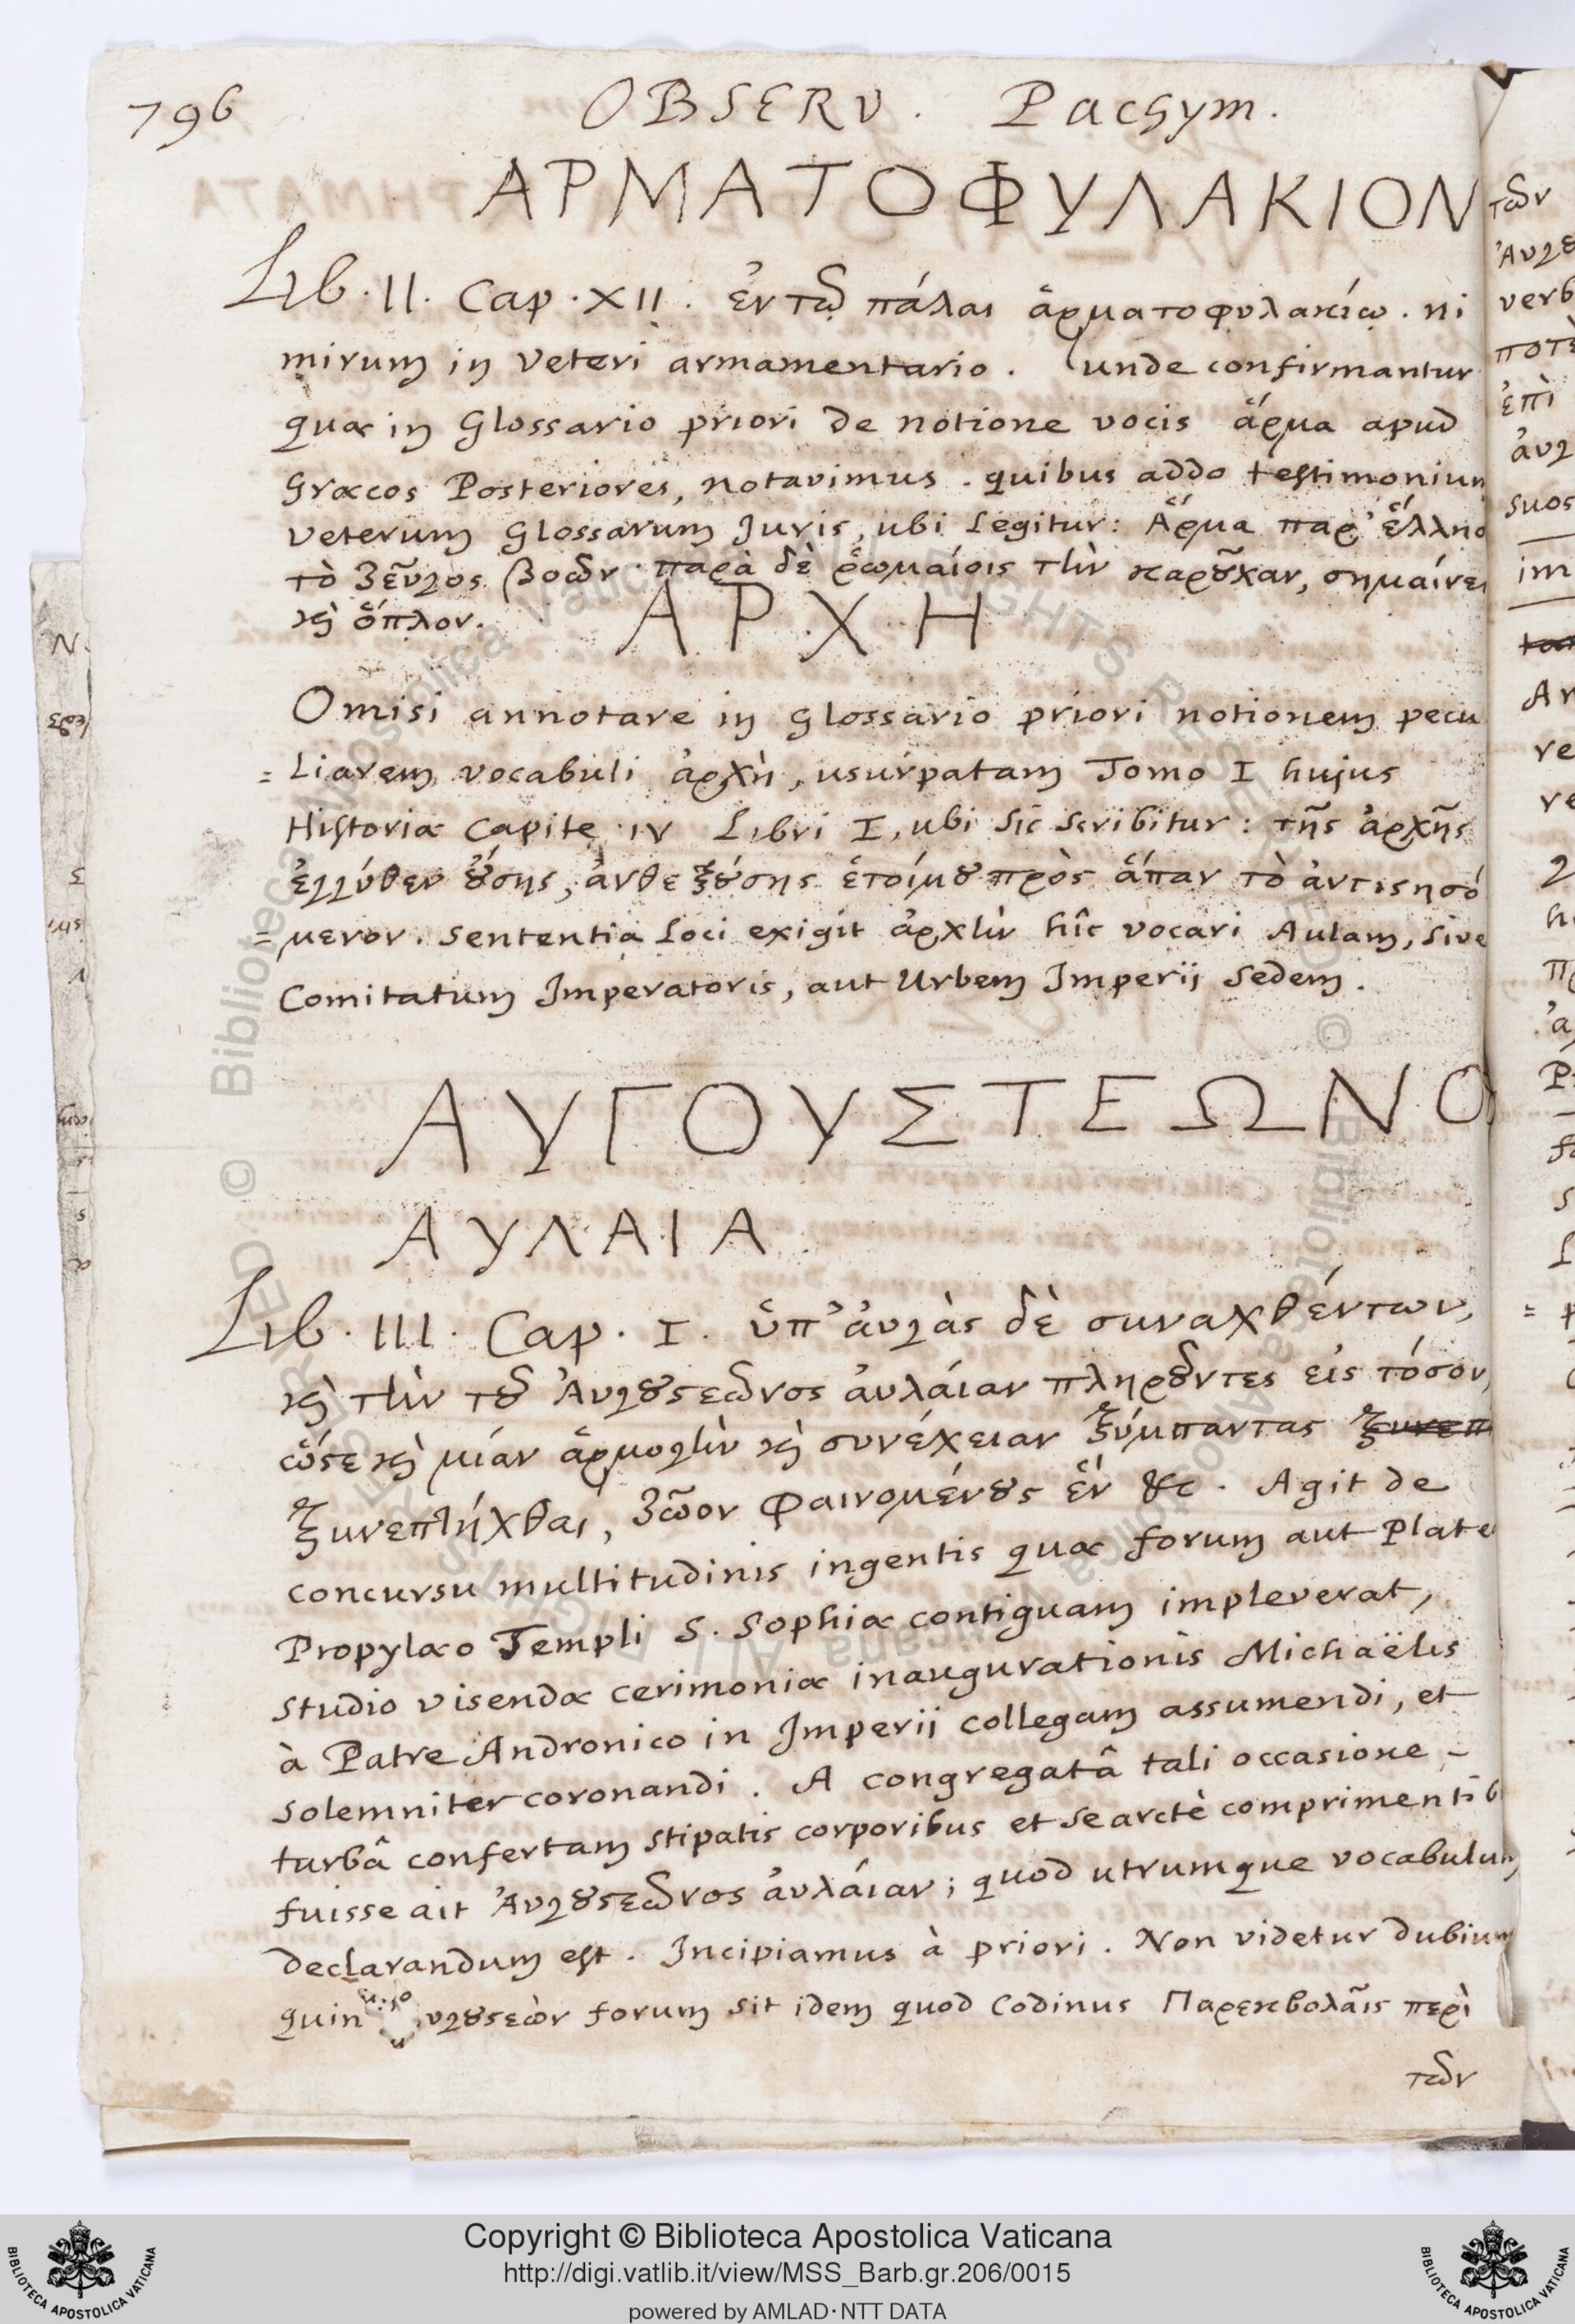 796 OBSERV. Pachym.
ΑΡΜΑΤΟΦΥΛΑΚΙΟΝ
Lib. II. Cap. XII. ἐν τῷ πάλαι ἁρματοφυλακίῳ. ni
mirum in veteri armamentario. unde confirmantur
quæ in Glossario priori de notione vocis ἅρμα apud
Græcos Posteriores, notavimus. quibus addo testimonium
veterum Glossarum Juris, ubi legitur: Ἅρμα παρ' ἕλλησ
τὸ ζεῦγος βοῶν. παρὰ δὲ ῥωμαίοις τὴν καροῦχαν, σημαίνει
καὶ ὅπλον.
ΑΡΧΗ
Omisi annotare in glossario priori notionem pecu
= liarem vocabuli ἀρχὴ, usurpatam Tomo I hujus
Historiæ Capite IV Libri I, ubi sic scribitur: τῆς ἀρχῆς
ἐγγύθεν οὔσης, ἀνθεξούσης ἑτοίμου πρὸς ἅπαν τὸ ἀντιστησό
= μενον. sententia loci exigit ἀρχὴν hîc vocari Aulam, sive
Comitatum Imperatoris, aut Urbem Imperii sedem.
ΑΥΓΟΥΣΤΕΩΝΟ
ΑΥΛΑΙΑ
Lib. III. Cap. I. ὑπ' ἀυγὰς δὲ συναχθέντων,
καὶ τὴν τοῦ Ἀυγουστεῶνος ἀυλάιαν πληροῦντες εἰς τόσον,
ὥστε καὶ μίαν ἁρμογὴν καὶ συνέχειαν ξύμπαντας ξυνεπ
ξυνεπτήχθαι, ζῶον φαινομένους ἓν &c. Agit de
concursu multitudinis ingentis quæ forum aut Plate
Propylæo Templi S. Sophiæ contiguam impleverat,
studio visendæ cerimoniæ inaugurationis Michaëlis
à Patre Andronico in Imperii collegam assumendi, et
solemniter coronandi. A congregatâ tali occasione
turbâ confertam stipatis corporibus et se arctè comprimentib
fuisse ait Ἀυγουστεῶνος ἀυλάιαν; quod utrumque vocabulum
declarandum est. Incipiamus à priori. Non videtur dubium
quin υγουστεὼν forum sit idem quod Codinus Παρεκβολᾶις περὶ
τῶν
τῶν
verb
ποτὲ
ἐπὶ
suos
im
Copyright © Biblioteca Apostolica Vaticana
http://digi.vatlib.it/view/MSS_Barb.gr.206/0015
powered by AMLAD·NTT DATA
BIBLIOTECA APOSTOLICA VATICANA
BIBLIOTECA APOSTOLICA VATICANA